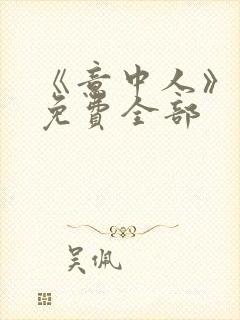 《意中人》
免費全部
吴佩